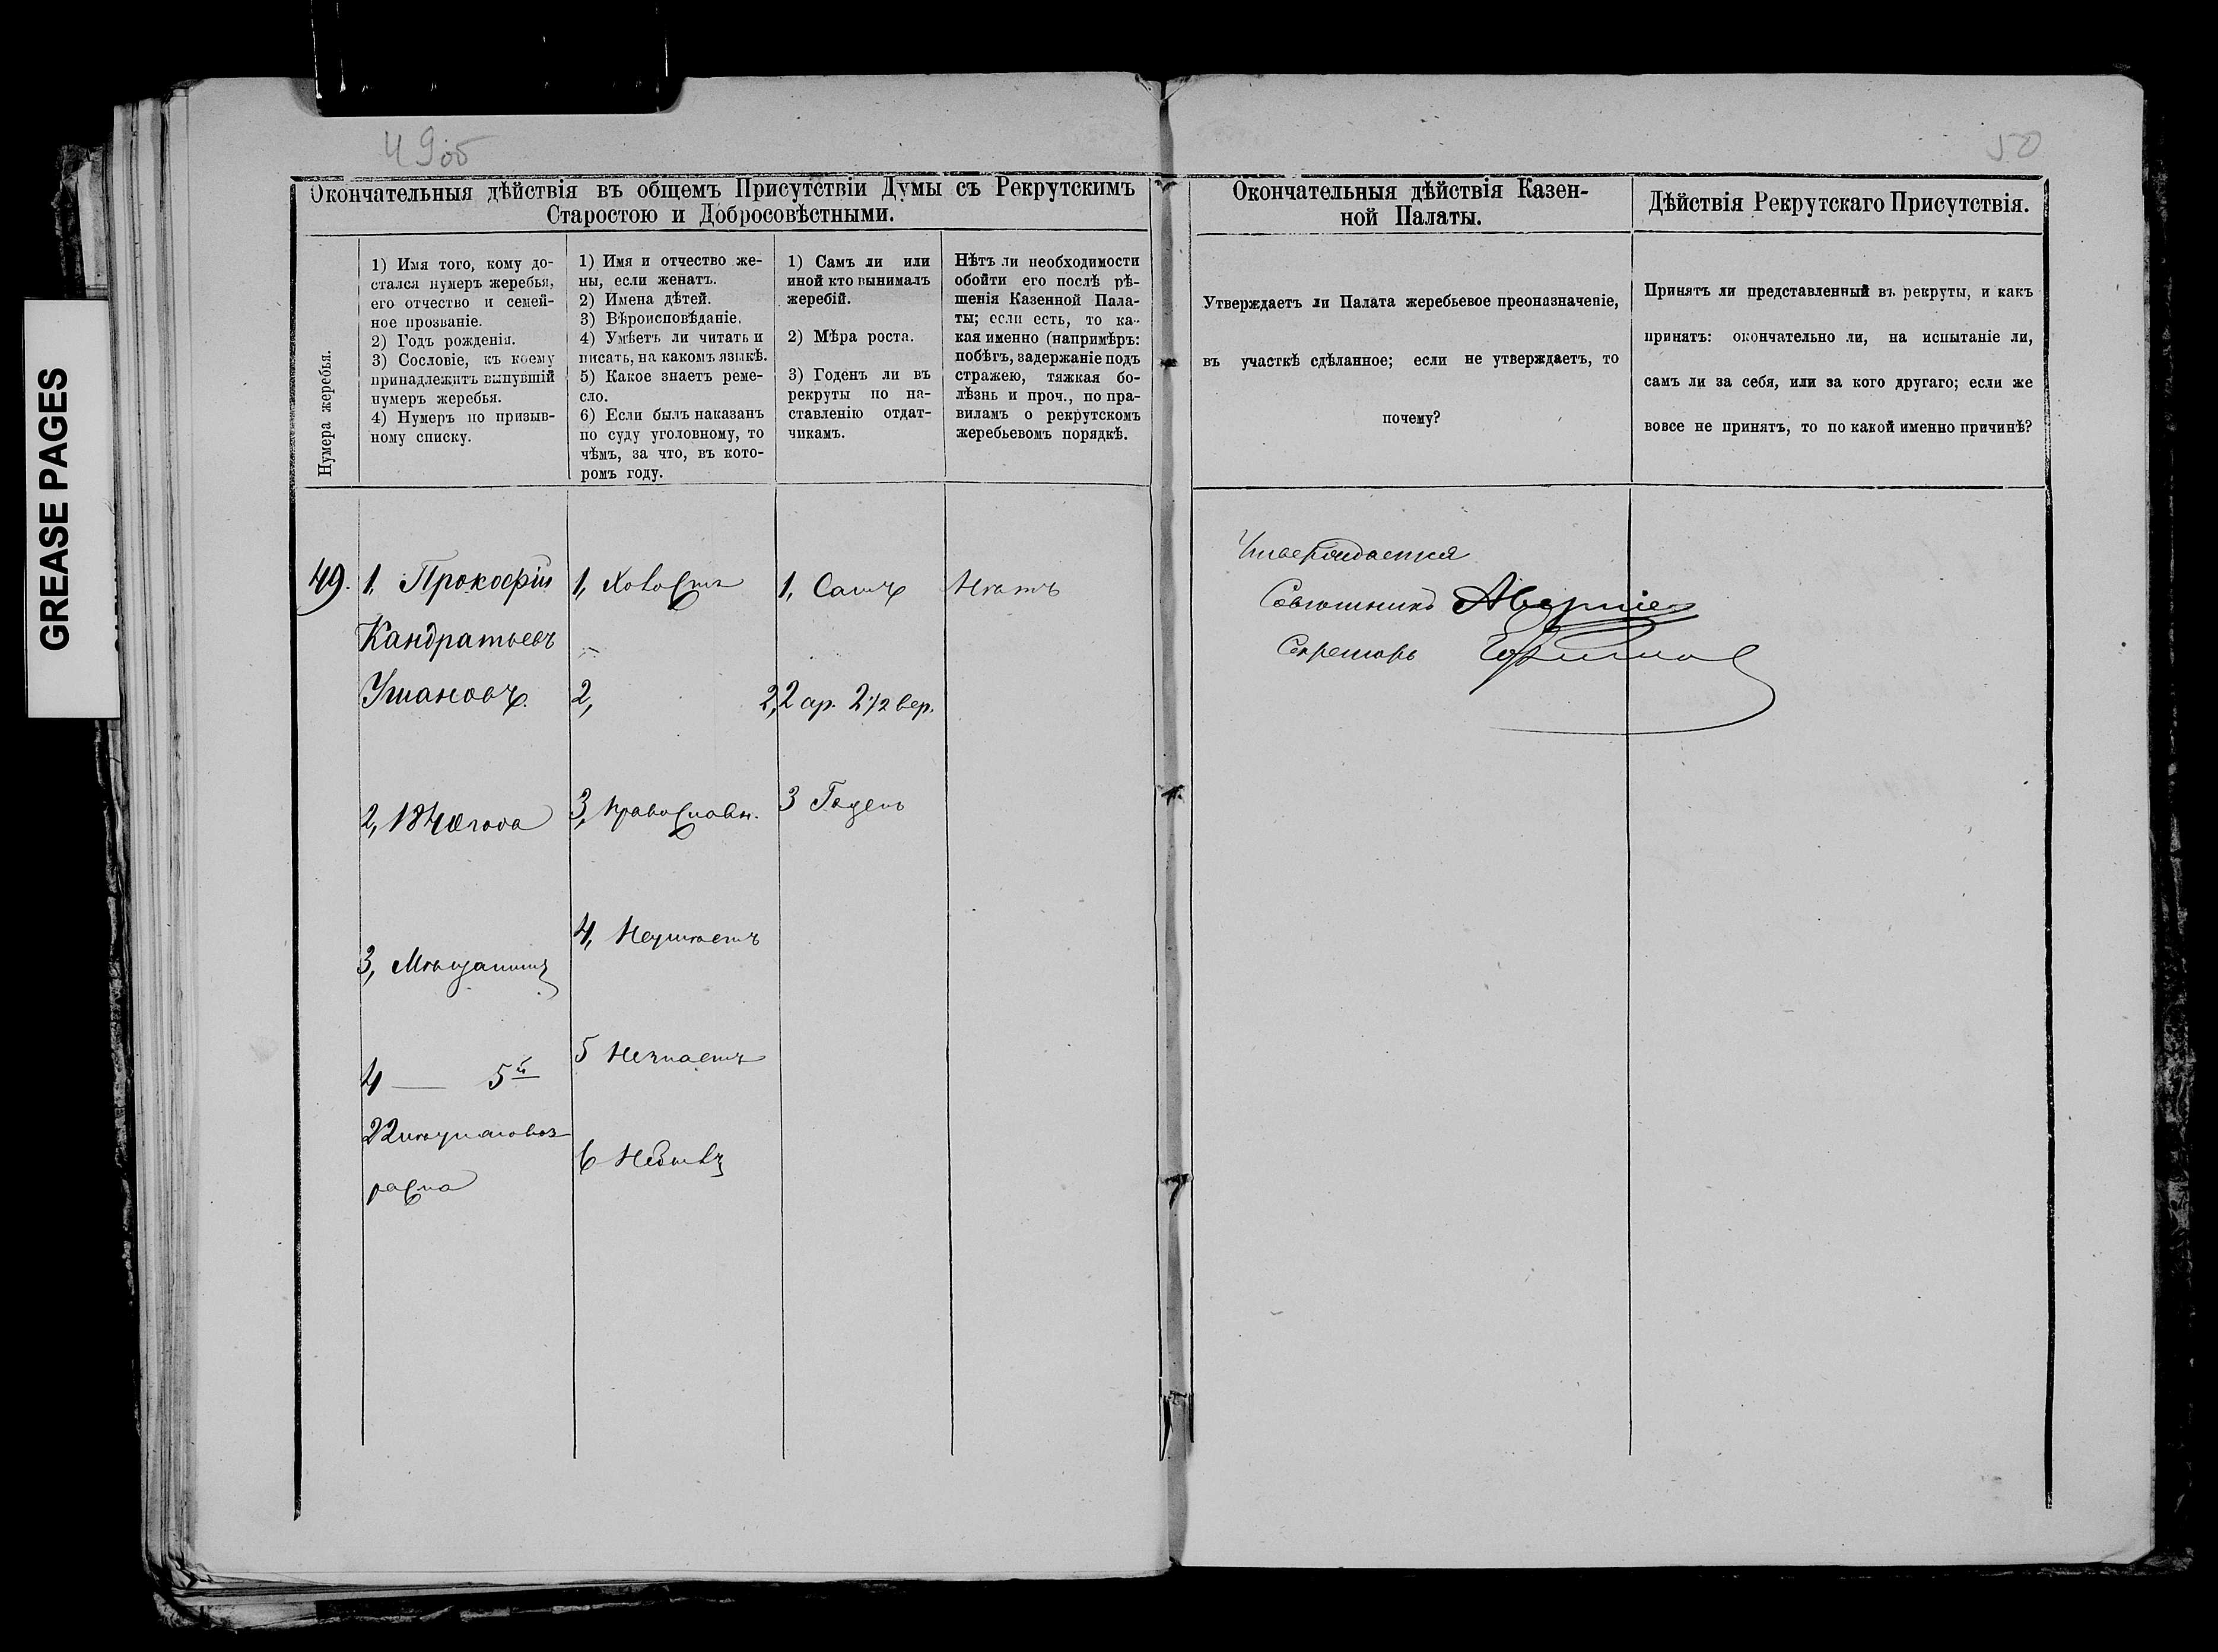 GREASE PAGES
49об
50
Окончательныя дѣйствія въ общемъ Присутствіи Думы съ Рекрутскимъ
Старостою и Добросовѣстными.
Нумера жеребья.
1) Имя того, кому до-
стался нумеръ жеребья,
его отчество и семей-
ное прозваніе.
2) Годъ рожденія.
3) Сословіе, къ коему
принадлежитъ вынувшій
нумеръ жеребья.
4) Нумеръ по призыв-
ному списку.
1) Имя и отчество же-
ны, если женатъ.
2) Имена дѣтей.
3) Вѣроисповѣданіе.
4) Умѣетъ ли читать и
писать, на какомъ языкѣ.
5) Какое знаетъ реме-
сло.
6) Если былъ наказанъ
по суду уголовному, то
чѣмъ, за что, въ кото-
ромъ году.
1) Самъ ли или
иной кто вынималъ
жеребій.
2) Мѣра роста.
3) Годенъ ли въ
рекруты по на-
ставленію отдат-
чикамъ.
Нѣтъ ли необходимости
обойти его послѣ рѣ-
шенія Казенной Пала-
ты; если есть, то ка-
кая именно (напримѣръ:
побѣгъ, задержаніе подъ
стражею, тяжкая бо-
лѣзнь и проч., по пра-
виламъ о рекрутскомъ
жеребьевомъ порядкѣ.
49.
1, Прокофiй
Кандратьевъ
Ушановъ.
2, 1840 года
3, Мѣщанинъ
4 — 5й
22
1, Холостъ
2,
3, Православн.
4, Неумѣетъ
5 Незнаетъ
6 Небылъ
1, Самъ
2, 2 ар. 2 1/2 вер.
3 Годенъ
Нѣтъ
Окончательныя дѣйствія Казен-
ной Палаты.
Утверждаетъ ли Палата жеребьевое преоназначеніе,
въ участкѣ сдѣланное; если не утверждаетъ, то
почему?
Утверждается
Совѣтникъ
Секретарь
Дѣйствія Рекрутскаго Присутствія.
Принятъ ли представленный въ рекруты, и какъ
принятъ: окончательно ли, на испытаніе ли,
самъ ли за себя, или за кого другаго; если же
вовсе не принятъ, то по какой именно причинѣ?